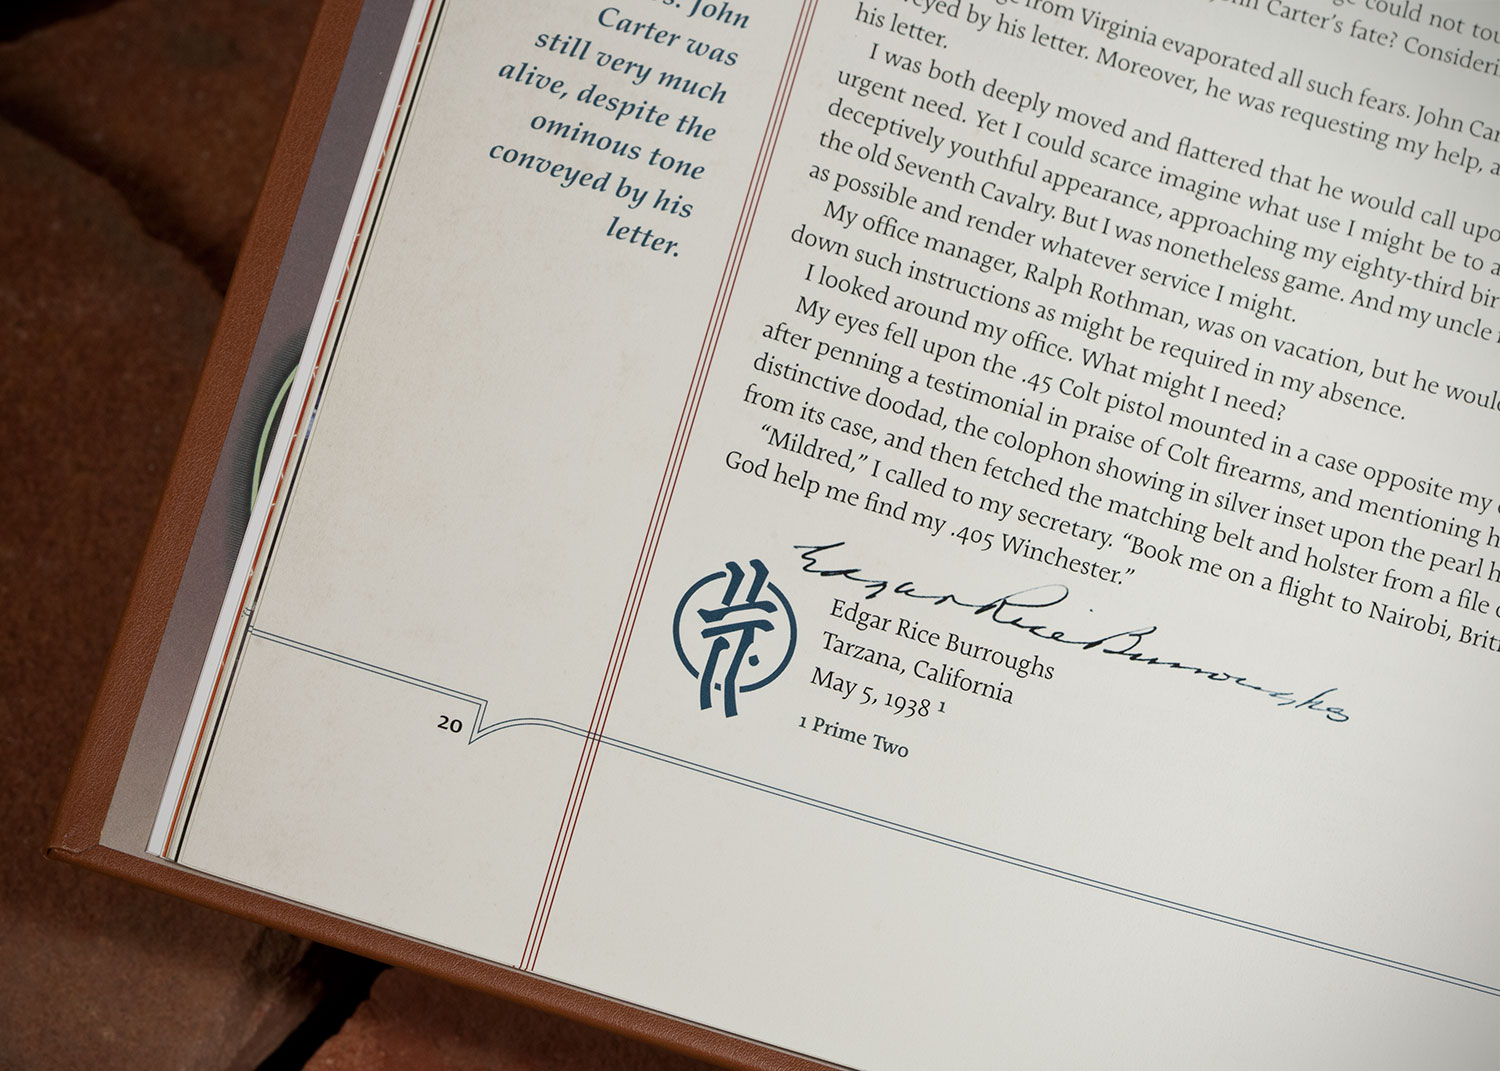 John
Carter was
still very much
alive, despite the
ominous tone
conveyed by his
letter.
could not tou
Carter's fate? Consideri
from Virginia evaporated all such fears. John Car
eyed by his letter. Moreover, he was requesting my help, a
his letter.
I was both deeply moved and flattered that he would call upo
urgent need. Yet I could scarce imagine what use I might be to a
deceptively youthful appearance, approaching my eighty-third bir
the old Seventh Cavalry. But I was nonetheless game. And my uncle
as possible and render whatever service I might.
My office manager, Ralph Rothman, was on vacation, but he woul
down such instructions as might be required in my absence.
I looked around my office. What might I need?
My eyes fell upon the .45 Colt pistol mounted in a case opposite my
after penning a testimonial in praise of Colt firearms, and mentioning h
distinctive doodad, the colophon showing in silver inset upon the pearl h
from its case, and then fetched the matching belt and holster from a file
“Mildred,” I called to my secretary. “Book me on a flight to Nairobi, Brit
God help me find my .405 Winchester.”
Edgar Rice Burroughs
Edgar Rice Burroughs
Tarzana, California
May 5, 1938 1
1 Prime Two
20